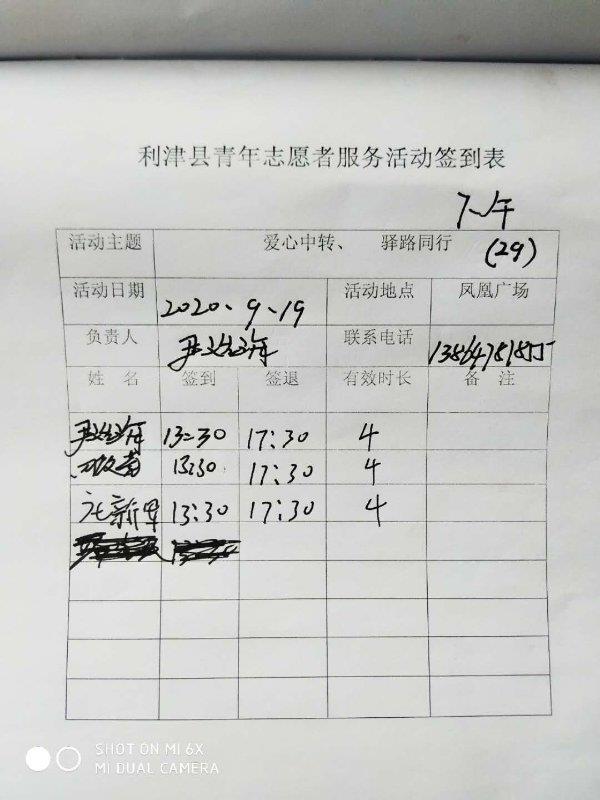 利津县青年志愿者服务活动签到表
下午
活动主题 爱心中转、 驿路同行 (29)
活动日期 2020、9、19 活动地点 凤凰广场
负责人 联系电话
姓 名 签到 签退 有效时长 备 注
13:30 17:30 4
13:30 17:30 4
13:30 17:30 4
SHOT ON MI 6X
MI DUAL CAMERA